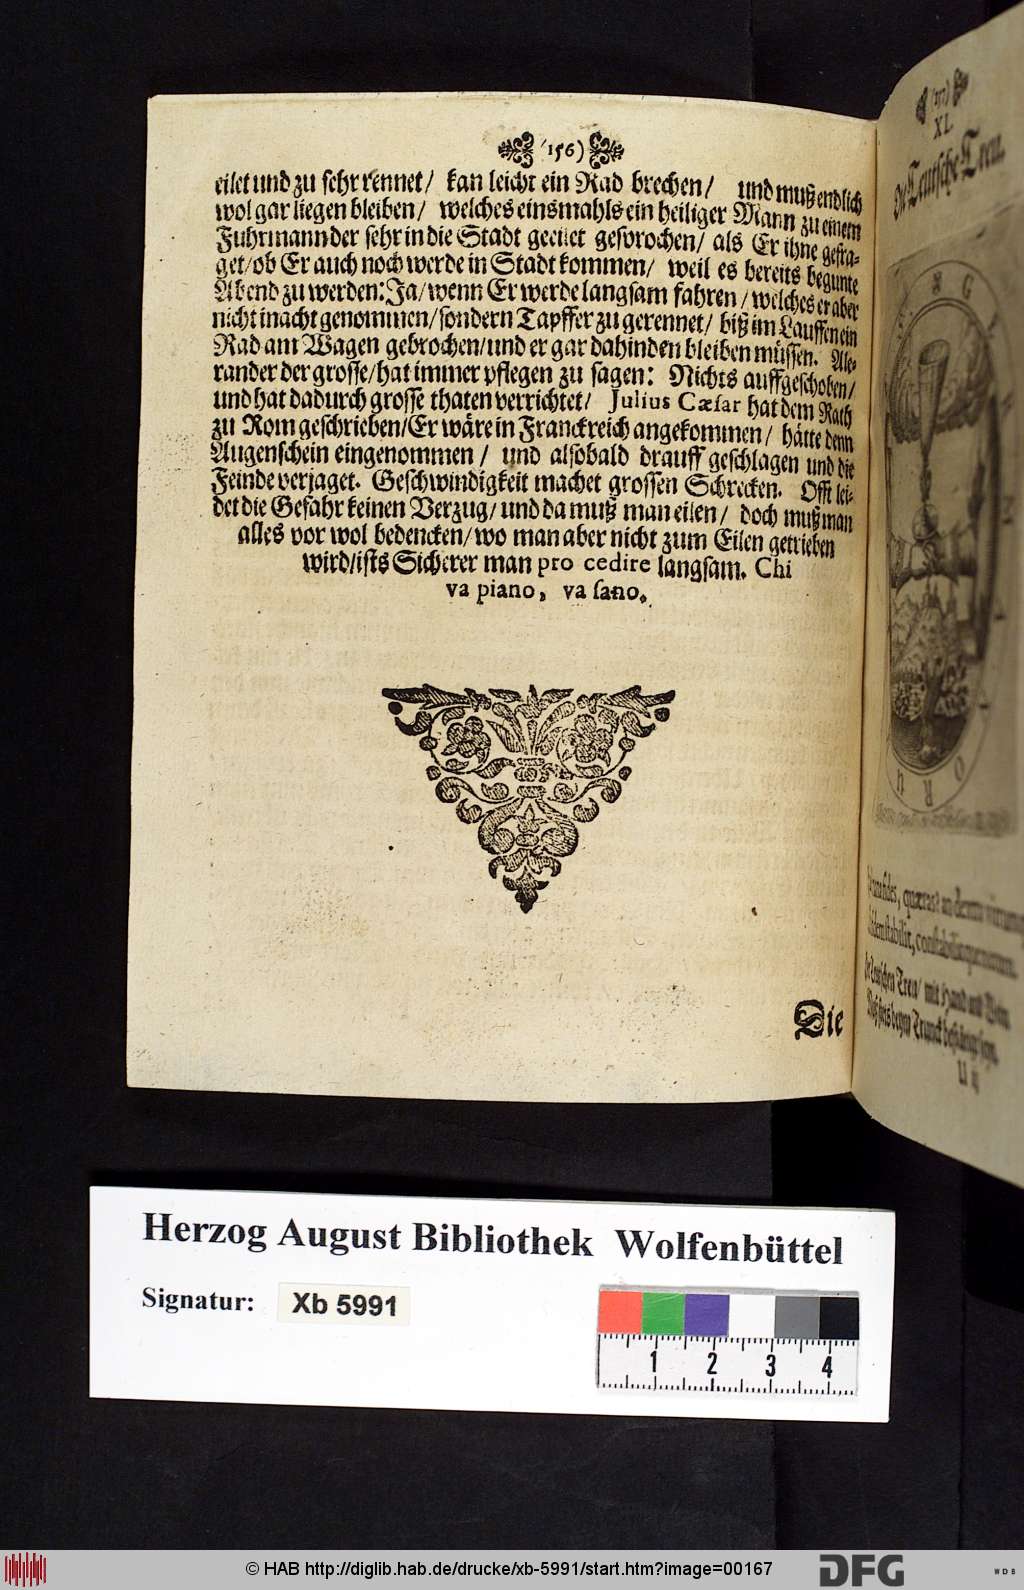 (156)
eilet und zu sehr rennet/ kan leicht ein Rad brechen/ und muß endlich
wol gar liegen bleiben/ welches einsmahls ein heiliger Mann zu einem
Fuhrmann der sehr in die Stadt geeilet gesprochen/ als Er ihne gefra-
get/ ob Er auch noch werde in Stadt kommen/ weil es bereits begunte
Abend zu werden: Ja/ wenn Er werde langsam fahren/ welches er aber
nicht inacht genommen/ sondern Tapffer zu gerennet/ biß im Lauffen ein
Rad am Wagen gebrochen/ und er gar dahinden bleiben müssen. Ale-
xander der grosse/ hat immer pflegen zu sagen: Nichts auffgeschoben/
und hat dadurch grosse thaten verrichtet/ Julius Cæsar hat dem Rath
zu Rom geschrieben/ Er wäre in Franckreich angekommen/ hätte denn
Augenschein eingenommen/ und alsobald drauff geschlagen und die
Feinde verjaget. Geschwindigkeit machet grossen Schrecken. Offt lei-
det die Gefahr keinen Verzug/ und da muß man eilen/ doch muß man
alles vor wol bedencken/ wo man aber nicht zum Eilen getrieben
wird/ ists Sicherer man pro cedire langsam. Chi
va piano, va sano.
Die
XL.
Die Teutsche Treu.
N G
R O
fides, quæras
stabilit,
Teutschen Treu/ mit Hand und
Trunck
U iij
Herzog August Bibliothek Wolfenbüttel
Signatur: Xb 5991
1 2 3 4
© HAB http://diglib.hab.de/drucke/xb-5991/start.htm?image=00167
DFG
WDB